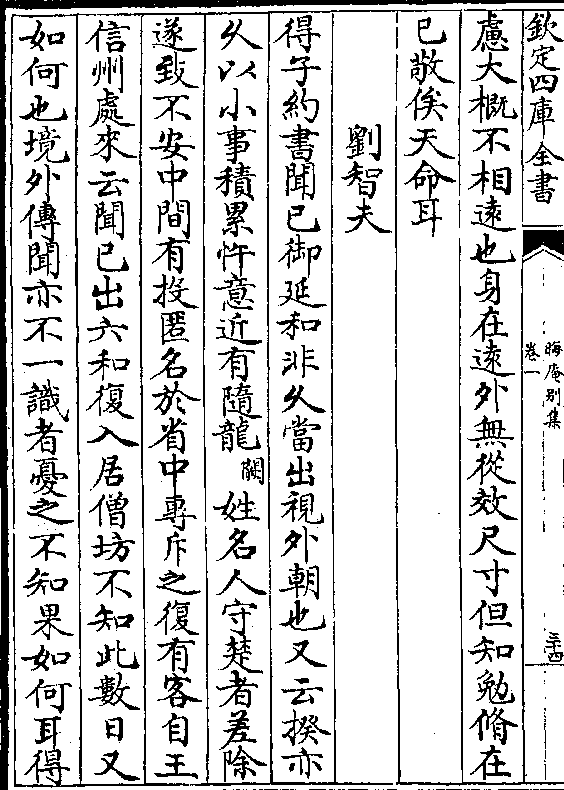 欽定四庫全書
晦庵别集
卷一
三十四
慮大概不相遠也身在遠外無從效尺寸但知勉脩在
已敬俟天命耳
劉智夫
得子約書聞已御延和非久當出視外朝也又云揆亦
久以小事積累忤意近有隨龍闕姓名人守楚者差除
遂致不安中間有投匿名於省中專斥之復有客自王
信州處來云聞已出六和復入居僧坊不知此數日又
如何也境外傳聞亦不一識者憂之不知果如何耳得